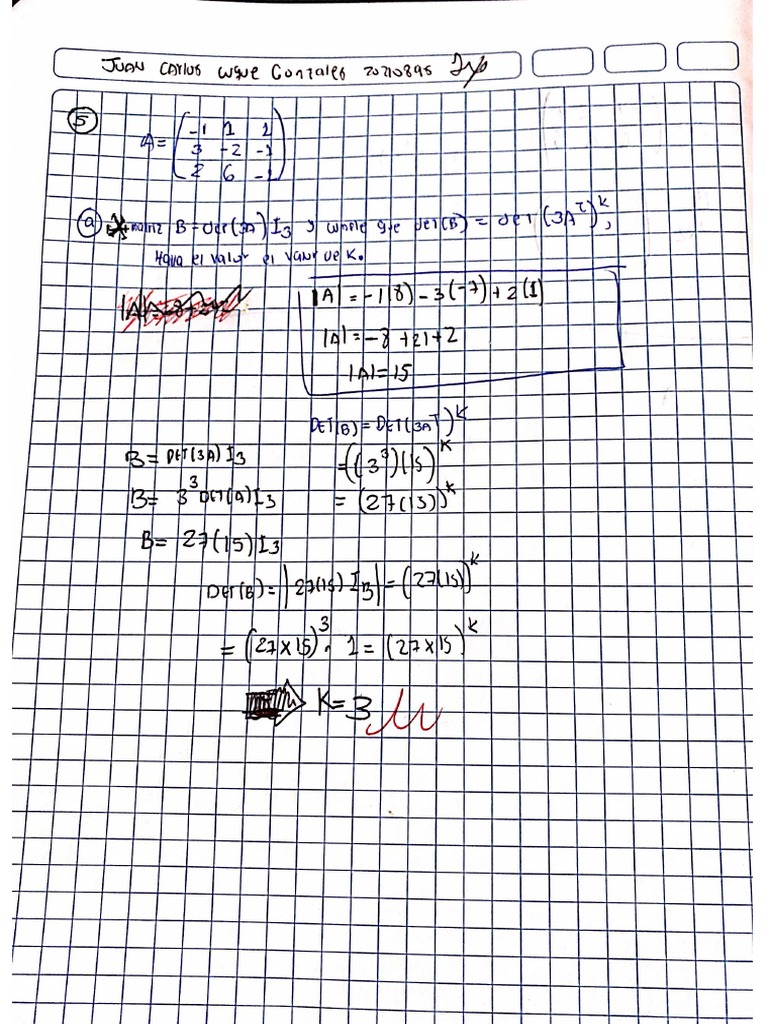 JUAN CARLOS Gonzales 20210895
5
A = ( -1 1 1
3 -2 -1
2 6 -1 )
a matriz B = det(3A) I3 y cumple que det(B) = det(3A^T)^k,
Haya el valor el valor de K.
|A| = -1(8) - 3(-7) + 2(1)
|A| = -8 + 21 + 2
|A| = 15
DET(B) = DET(3A^T)^K
B = DET(3A) I3
= ((3^3)(15))^K
B = 3^3 DET(A) I3
= (27(15))^K
B = 27(15) I3
DET(B) = |27(15) I3| = (27(15))^K
= (27x15)^3 . 1 = (27x15)^K
K = 3